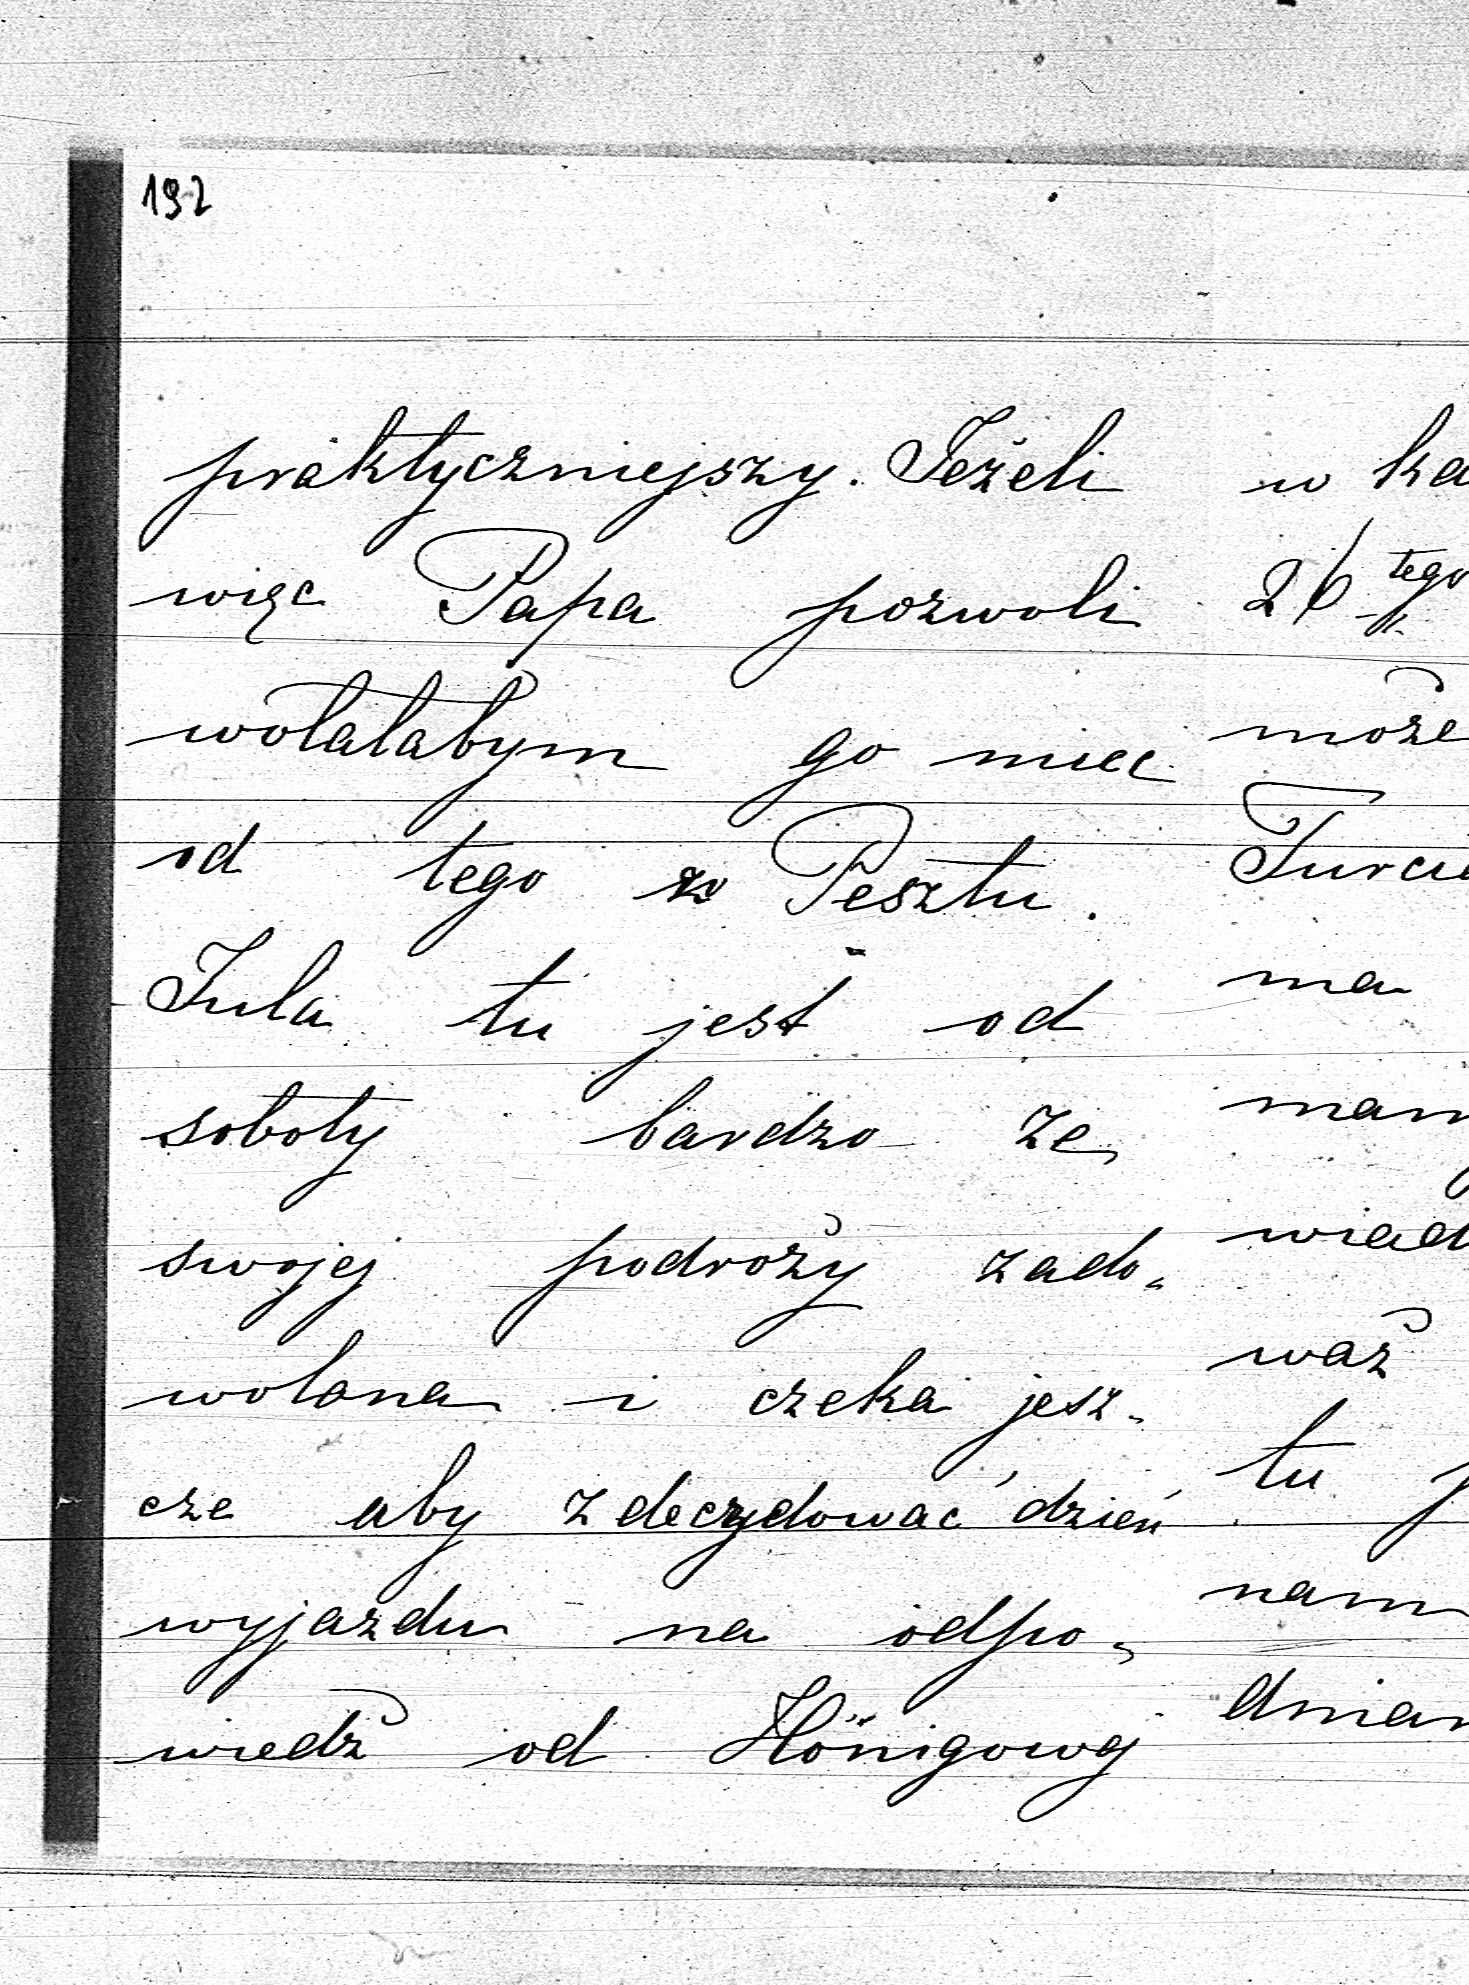 192
praktyczniejszy. Jeżeli
więc Papa pozwoli
wolałabym go miec
od tego z Pesztu.
Jula tu jest od
soboty bardzo ze
swojej podroży zado„
wolona i czeka jesz„
cze aby zdecydować dzień
wyjazdu na odpo„
wiedź od Hönigowej
w ka
26 tego
może
Turcie
ma
mam
wied
waż
tu
nam
dniam